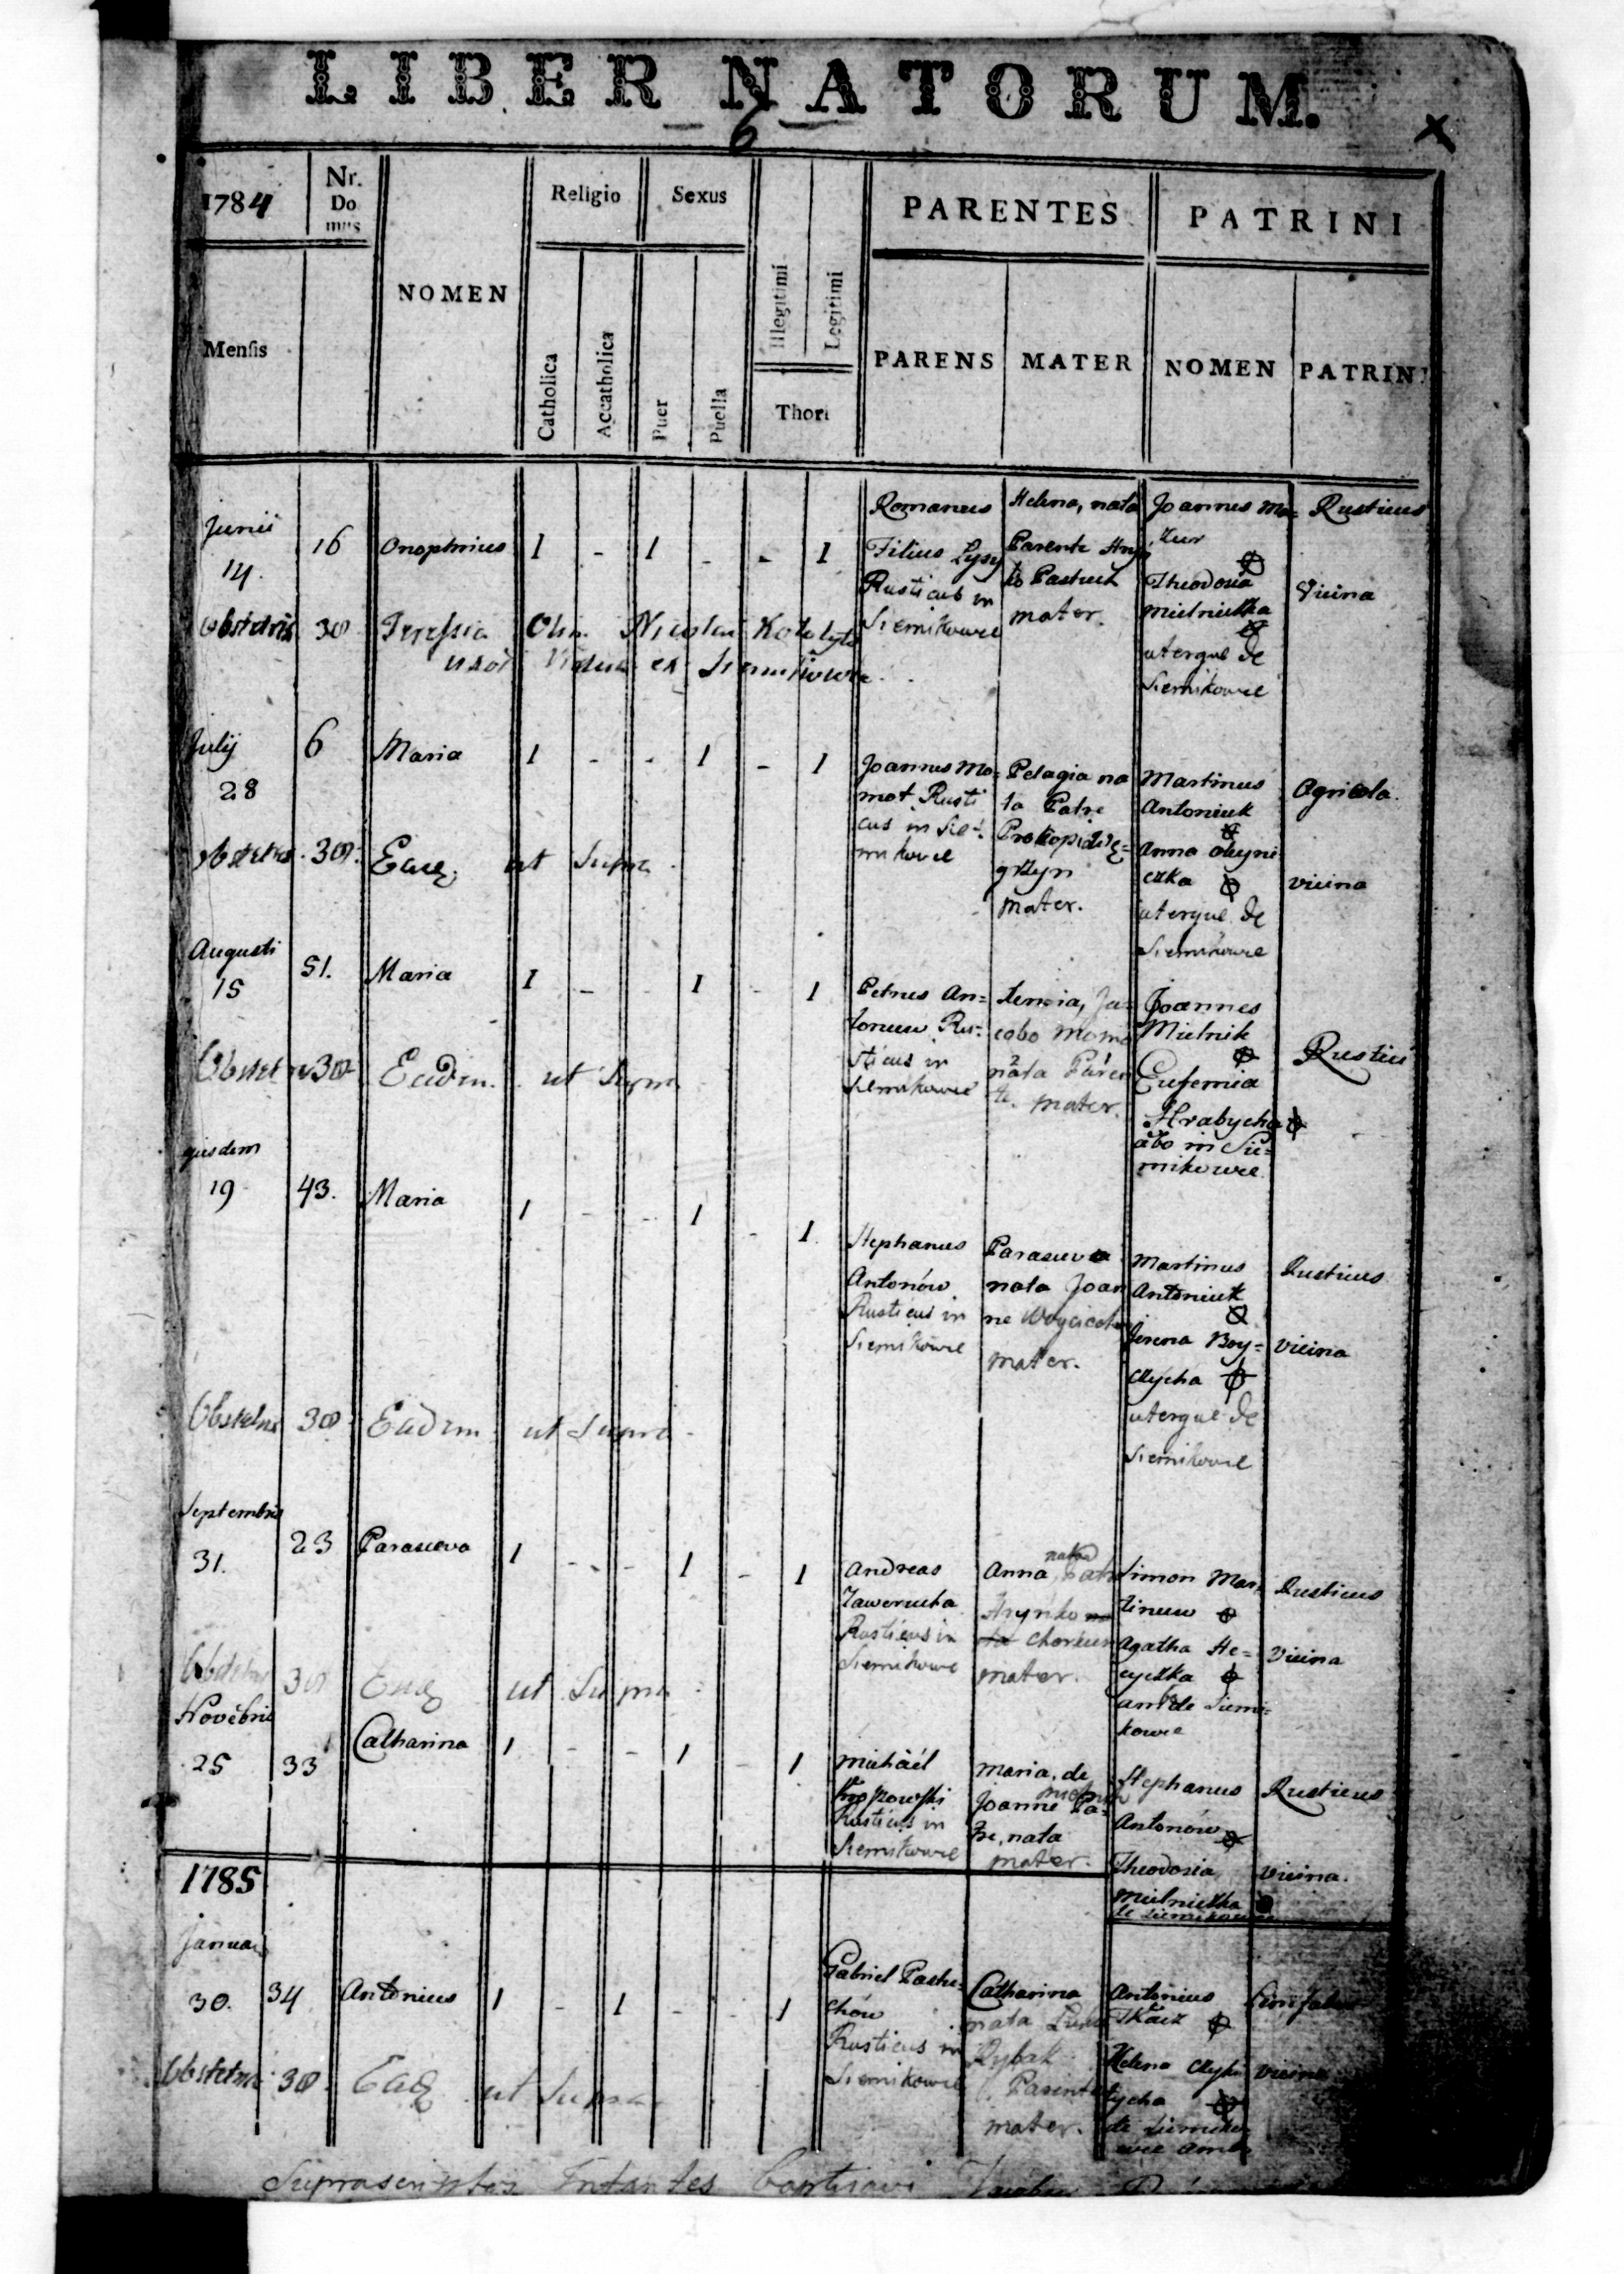 LIBER NATORUM.
6
1784
Nr. Do mus
NOMEN
Religio
Sexus
Illegitimi
Legitimi
PARENTES
PATRINI
Mensis
Catholica
Accatholica
Puer
Puella
Thori
PARENS
MATER
NOMEN
PATRINI
Junii
14.
16
Onophrius
1 - 1 - - 1
Romanus
Filius Lysy
Rusticus in
Siemikowce
Helena, nata
Parente
Pastuch
mater.
Joannes Ma=
zur
Theodosia
Mielniczka
uterque de
Siemikowce
Rusticus
Vicina
Obstetrix 30
Olim Nicolai
uxor Vidua ex Siemikowce
Julij
28
6
Maria
1 - - 1 - 1
Joannes Mo=
mot Rusti
cus in Sie=
mikowce
Pelagia na
ta Patre
grzyn
mater.
Martinus
Antoniuk
Anna Oleyni
czka
uterque de
Siemikowce
Agricola.
vicina
Obstetrix 30. Eadem ut Supra
Augusti
15
51.
Maria
1 - - 1 - 1
Petrus An=
toniuw Rus=
ticus in
Siemikowce
cobo
nata Paren
te. mater.
Joannes
Mielnik
Eufemia
Hrabycha
abo in Sie=
mikowce
Rusticus
Obstetrix 30 Eadem ut Supra
ejusdem
19
43.
Maria
1 - - 1 - 1.
Stephanus
Antonów
Rusticus in
Siemikowce
Parasceva
nata Joan
ne
mater.
Martinus
Antoniuk
Irena Boy=
czycha
uterque de
Siemikowce
Rusticus
vicina
Obstetrix 30 Eadem ut Supra
Septembris
31.
23
Parasceva
1 - - 1 - 1
Andreas
Zawerucha
Rusticus in
Siemikowce
Anna nata
Hryńko
mater.
Simon Mar=
tinuw
Agatha He=
cyczka
ambo de Siemi=
kowce
Rusticus
Vicina
Obstetrix 30 Eadem ut Supra
Novebris
25
33
Catharina
1 - - 1 - 1
Michaël
Rusticus in
Siemikowce
Maria, de
Joanne Pa=
tre, nata
mater.
Stephanus
Antonów
Theodosia
Mielniczka
de Siemikowce
Rusticus
vicina.
1785
Januarij
30.
34
Antonius
1 - 1 - - 1
Gabriel Pastu=
chów
Rusticus in
Siemikowce
Catharina
nata
Rybak
Parente
mater.
Antonius
Tkacz
Helena
de Siemiko
wce ambo
vicina
Obstetrix 30. Eadem ut Supra
Suprascriptos Infantes baptisavi